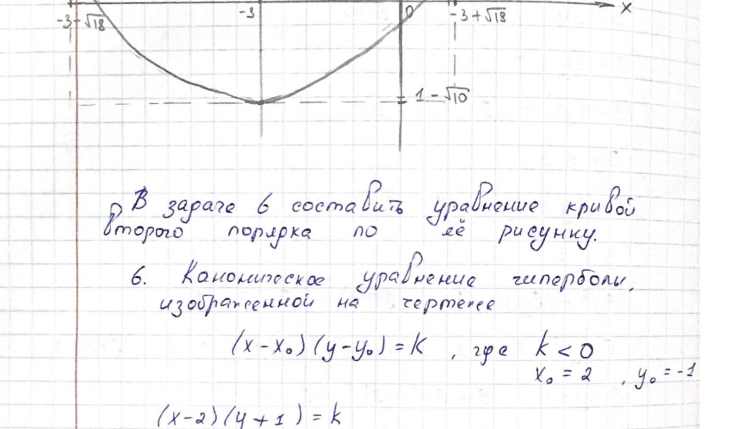 -3-√18 -3 0 -3+√18 x
1-√10
В задаче 6 составить уравнение кривой
второго порядка по её рисунку.
6. Каноническое уравнение гиперболы,
изображенной на чертеже
(x-x₀)(y-y₀)=k , где k<0
x₀=2 , y₀=-1
(x-2)(y+1)=k